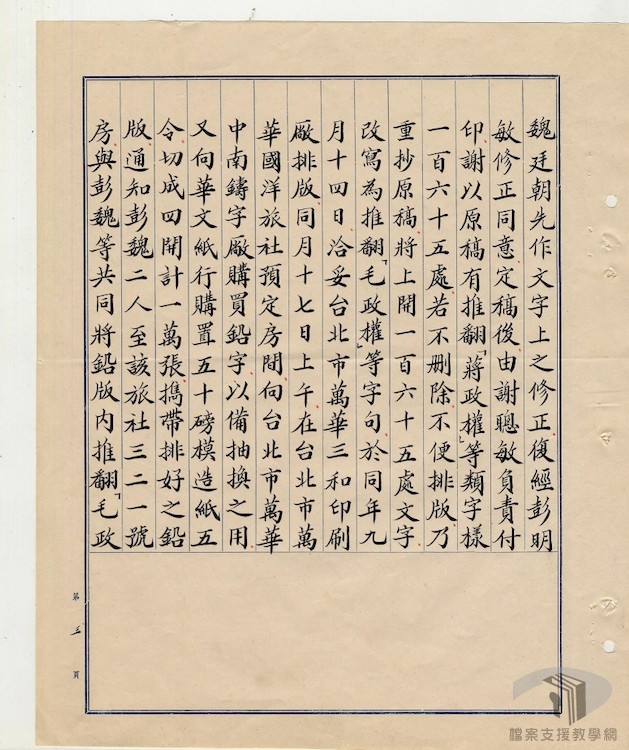 魏廷朝先作文字上之修正,復經彭明
敏修正同意定稿後,由謝聰敏負責付
印,謝以原稿有推翻「蔣政權」等類字樣
一百六十五處,若不刪除,不便排版,乃
重抄原稿,將上開一百六十五處文字,
改寫為推翻「毛政權」等字句,於同年九
月十四日,洽妥台北市萬華三和印刷
廠排版,同月十七日上午在台北市萬
華國洋旅社預定房間,向台北市萬華
中南鑄字廠購買鉛字,以備抽換之用,
又向華文紙行購置五十磅模造紙五
令,切成四開計一萬張,携帶排好之鉛
版,通知彭魏二人至該旅社三二一號
房,與彭魏等共同將鉛版內推翻「毛政
第三頁
檔案支援教學網